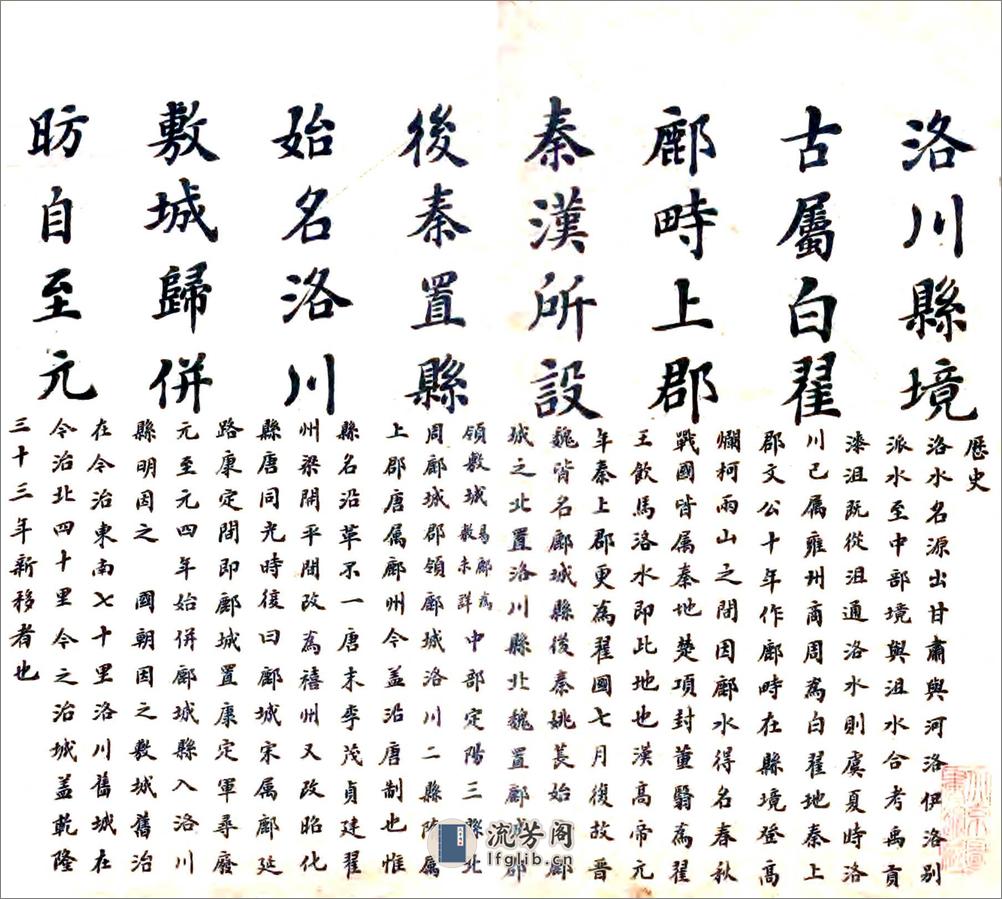 歷史
洛川縣境
古屬白翟
鄜畤上郡
秦漢所設
後秦置縣
始名洛川
敷城歸併
昉自至元
洛水名源出甘肅與河洛伊洛別
派水至中部境與沮水合考禹貢
漆沮旣從沮通洛水則虞夏時洛
川已属雍州商周為白翟地秦上
郡文公十年作鄜畤在縣境登高
爛柯兩山之間因鄜水得名春秋
戰國皆属秦地楚項封董翳為翟
王飲馬洛水即此地也漢高帝元
年秦上郡更為翟國七月復故晉
魏皆名鄜城縣後秦姚萇始鄜
城之北置洛川縣北魏置鄜城郡
領敷城易鄜為敷未詳中部定陽三縣北
周鄜城郡領鄜城洛川二縣隋属
上郡唐属鄜州今盖沿唐制也惟
縣名沿革不一唐末李茂貞建翟
州梁開平間改為禧州又改昭化
縣唐同光時復曰鄜城宋属鄜延
路康定間即鄜城置康定軍尋廢
元至元四年始併鄜城縣入洛川
縣明因之 國朝因之敷城舊治
在今治東南七十里洛川舊城在
今治北四十里今之治城盖乾隆
三十三年新移者也
流芳阁
lfglib.cn